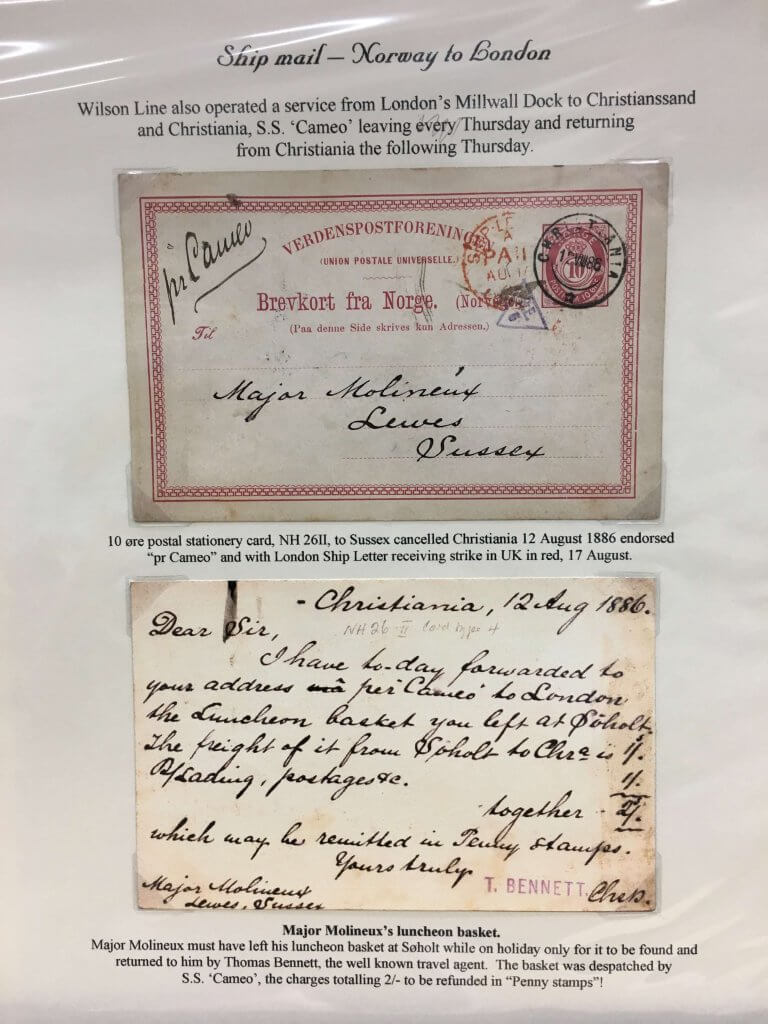 Ship mail – Norway to London
Wilson Line also operated a service from London's Millwall Dock to Christianssand
and Christiania, S.S. 'Cameo' leaving every Thursday and returning
from Christiania the following Thursday.
pr Cameo
VERDENSPOSTFORENING
(UNION POSTALE UNIVERSELLE.)
SHIP-LE
PAI
AU 17
CHRISTIANIA
12 VIII 86
10
Brevkort fra Norge.
Til
(Paa denne Side skrives kun Adressen.)
Major Molineux
Lewes
Sussex
10 øre postal stationery card, NH 26II, to Sussex cancelled Christiania 12 August 1886 endorsed
"pr Cameo" and with London Ship Letter receiving strike in UK in red, 17 August.
- Christiania, 12 Aug 1886.
Dear Sir,
NH 26 - II Card type 4
I have to-day forwarded to
your address via per 'Cameo' to London
the Luncheon basket you left at Søholt.
The freight of it from Søholt to Chra is 1/.
B/Lading, postages &c. 1/.
together - 2/.
which may be remitted in Penny stamps.
Yours truly
T. BENNETT.
Major Molineux
Lewes, Sussex
Major Molineux's luncheon basket.
Major Molineux must have left his luncheon basket at Søholt while on holiday only for it to be found and
returned to him by Thomas Bennett, the well known travel agent. The basket was despatched by
S.S. 'Cameo', the charges totalling 2/- to be refunded in "Penny stamps"!